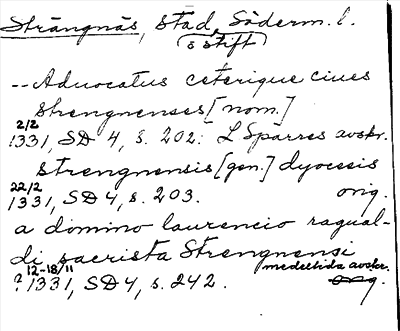 Strängnäs, stad, Söderm. l.
s stift
-- Aduocatus ceterique ciues
strengnenses [nom.]
2/2
1331, SD 4, s. 202: L Sparres avskr.
strengnensis [gen.] dyocesis
22/2 orig.
1331, SD 4, s. 203.
a domino laurencio ragual-
di sacrista Strengnensi
12-18/11 medeltida avskr.
? 1331, SD 4, s. 242. orig.